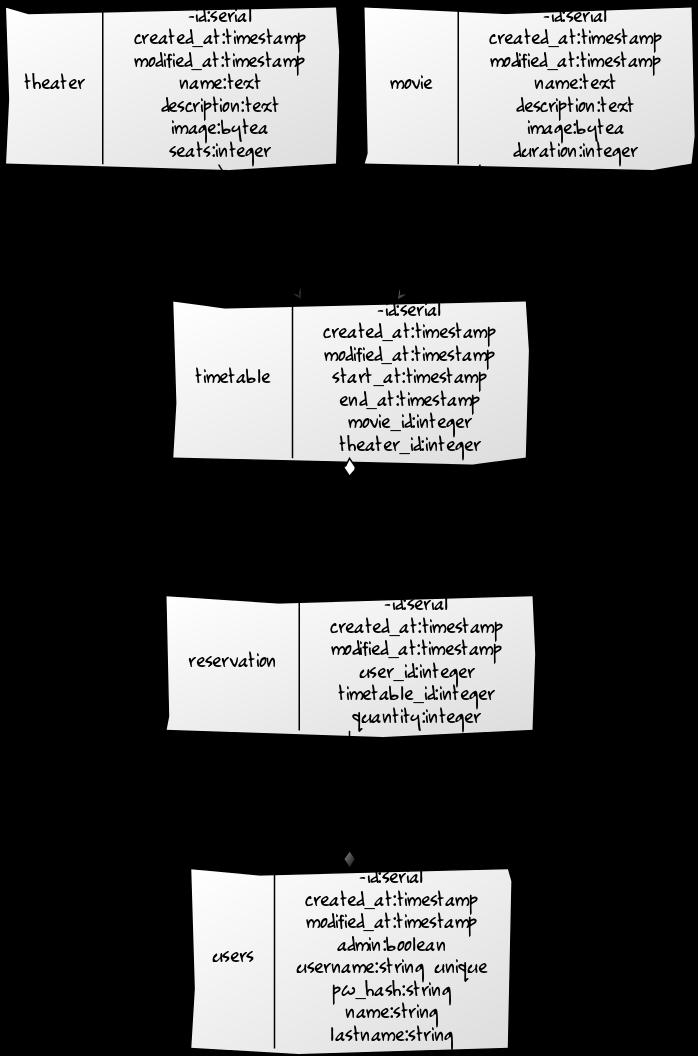 theater
-id:serial
created_at:timestamp
modified_at:timestamp
name:text
description:text
image:bytea
seats:integer
movie
-id:serial
created_at:timestamp
modified_at:timestamp
name:text
description:text
image:bytea
duration:integer
timetable
-id:serial
created_at:timestamp
modified_at:timestamp
start_at:timestamp
end_at:timestamp
movie_id:integer
theater_id:integer
reservation
-id:serial
created_at:timestamp
modified_at:timestamp
user_id:integer
timetable_id:integer
quantity:integer
users
-id:serial
created_at:timestamp
modified_at:timestamp
admin:boolean
username:string unique
pw_hash:string
name:string
lastname:string